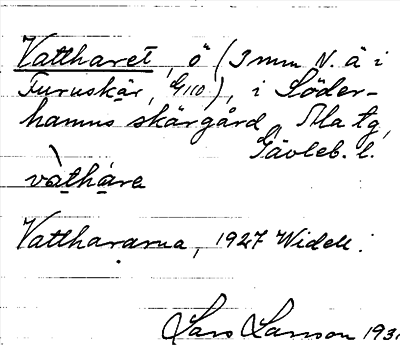 Vattharet, ö (3 mm N. ä i
Furuskär, G110), i Söder-
hamns skärgård, Ala tg,
Gävleb. l.
vàthára
Vatthararna, 1927 Widell.
Lars Larsson 193